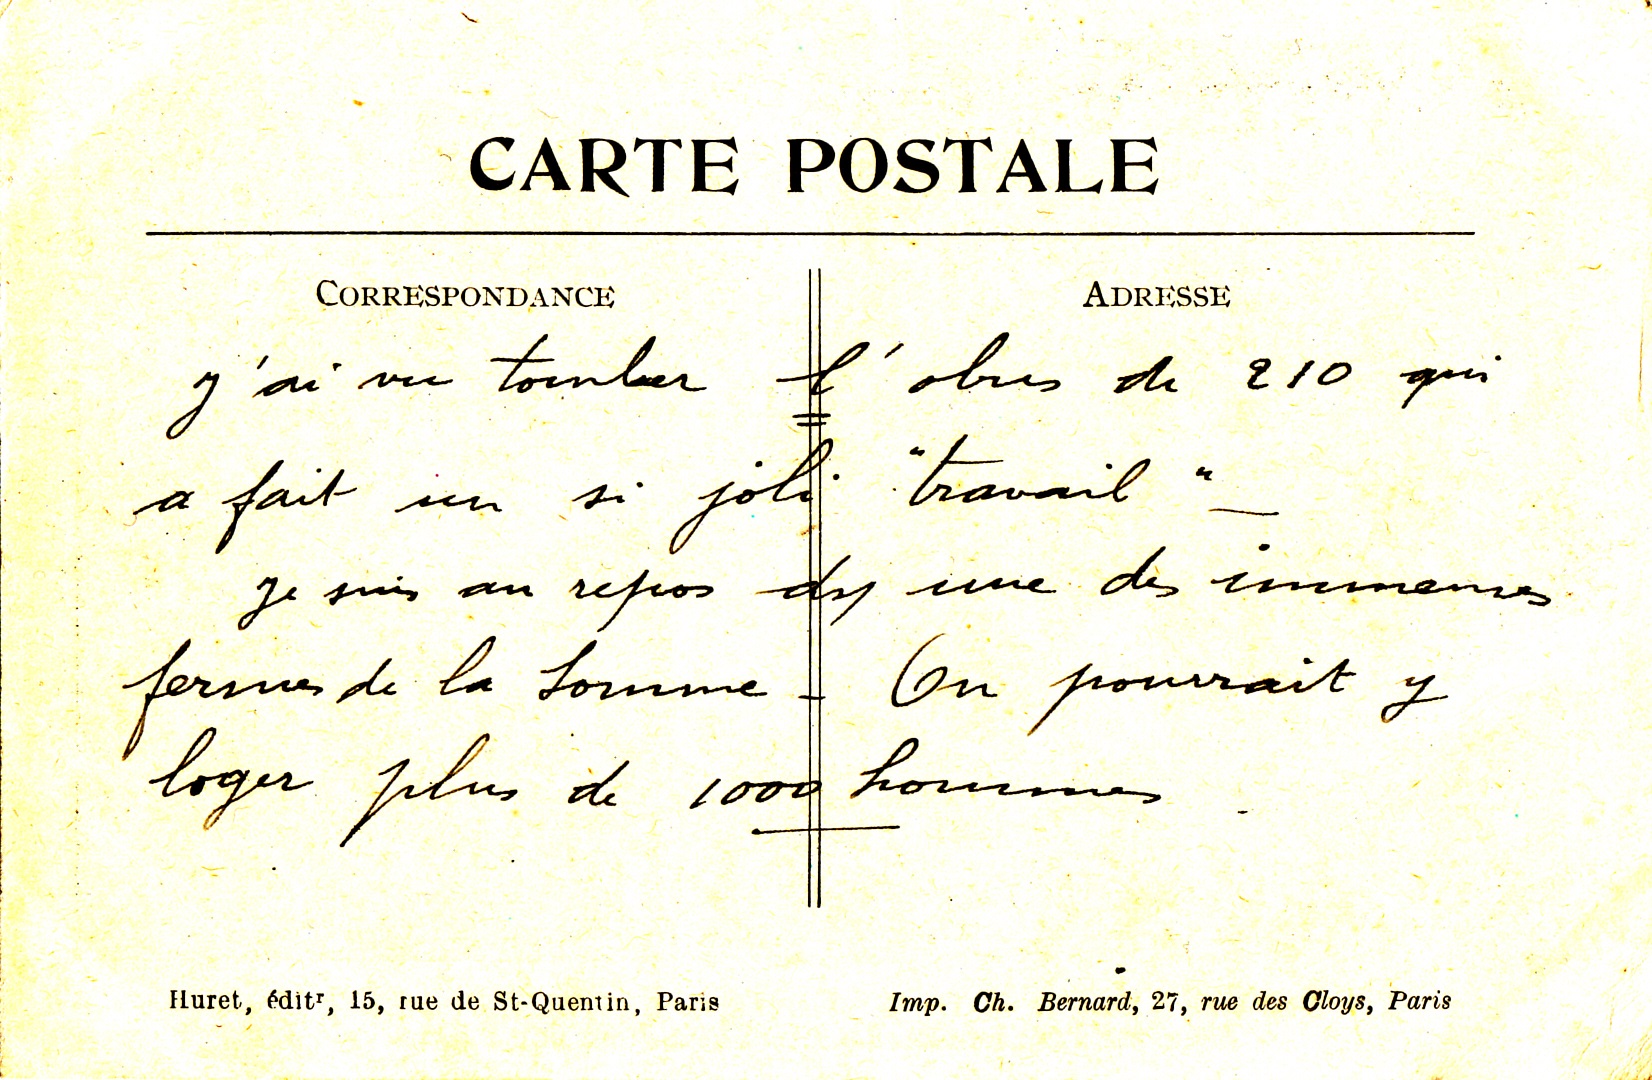 CARTE POSTALE
CORRESPONDANCE
ADRESSE
J'ai vu tomber l'obus de 210 qui
a fait un si joli "travail" —
Je suis au repos ds une des immenses
fermes de la Somme - On pourrait y
loger plus de 1000 hommes.
Huret, édit^r, 15, rue de St-Quentin, Paris
Imp. Ch. Bernard, 27, rue des Cloys, Paris